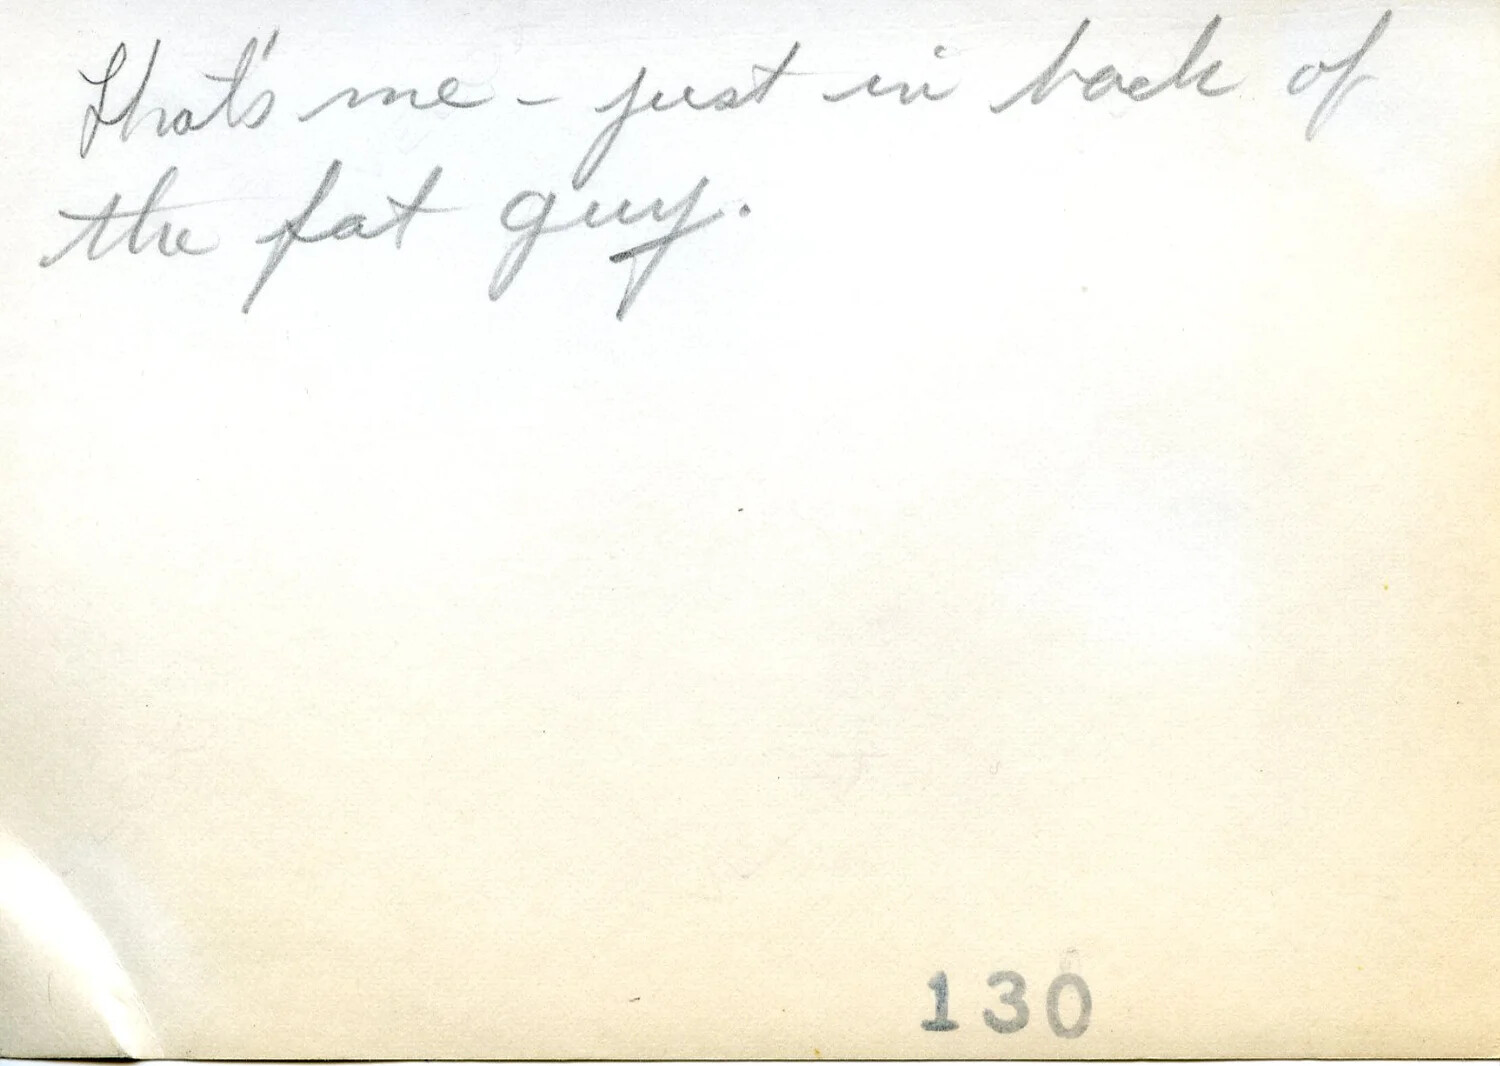 That's me - just in back of
the fat guy.
130